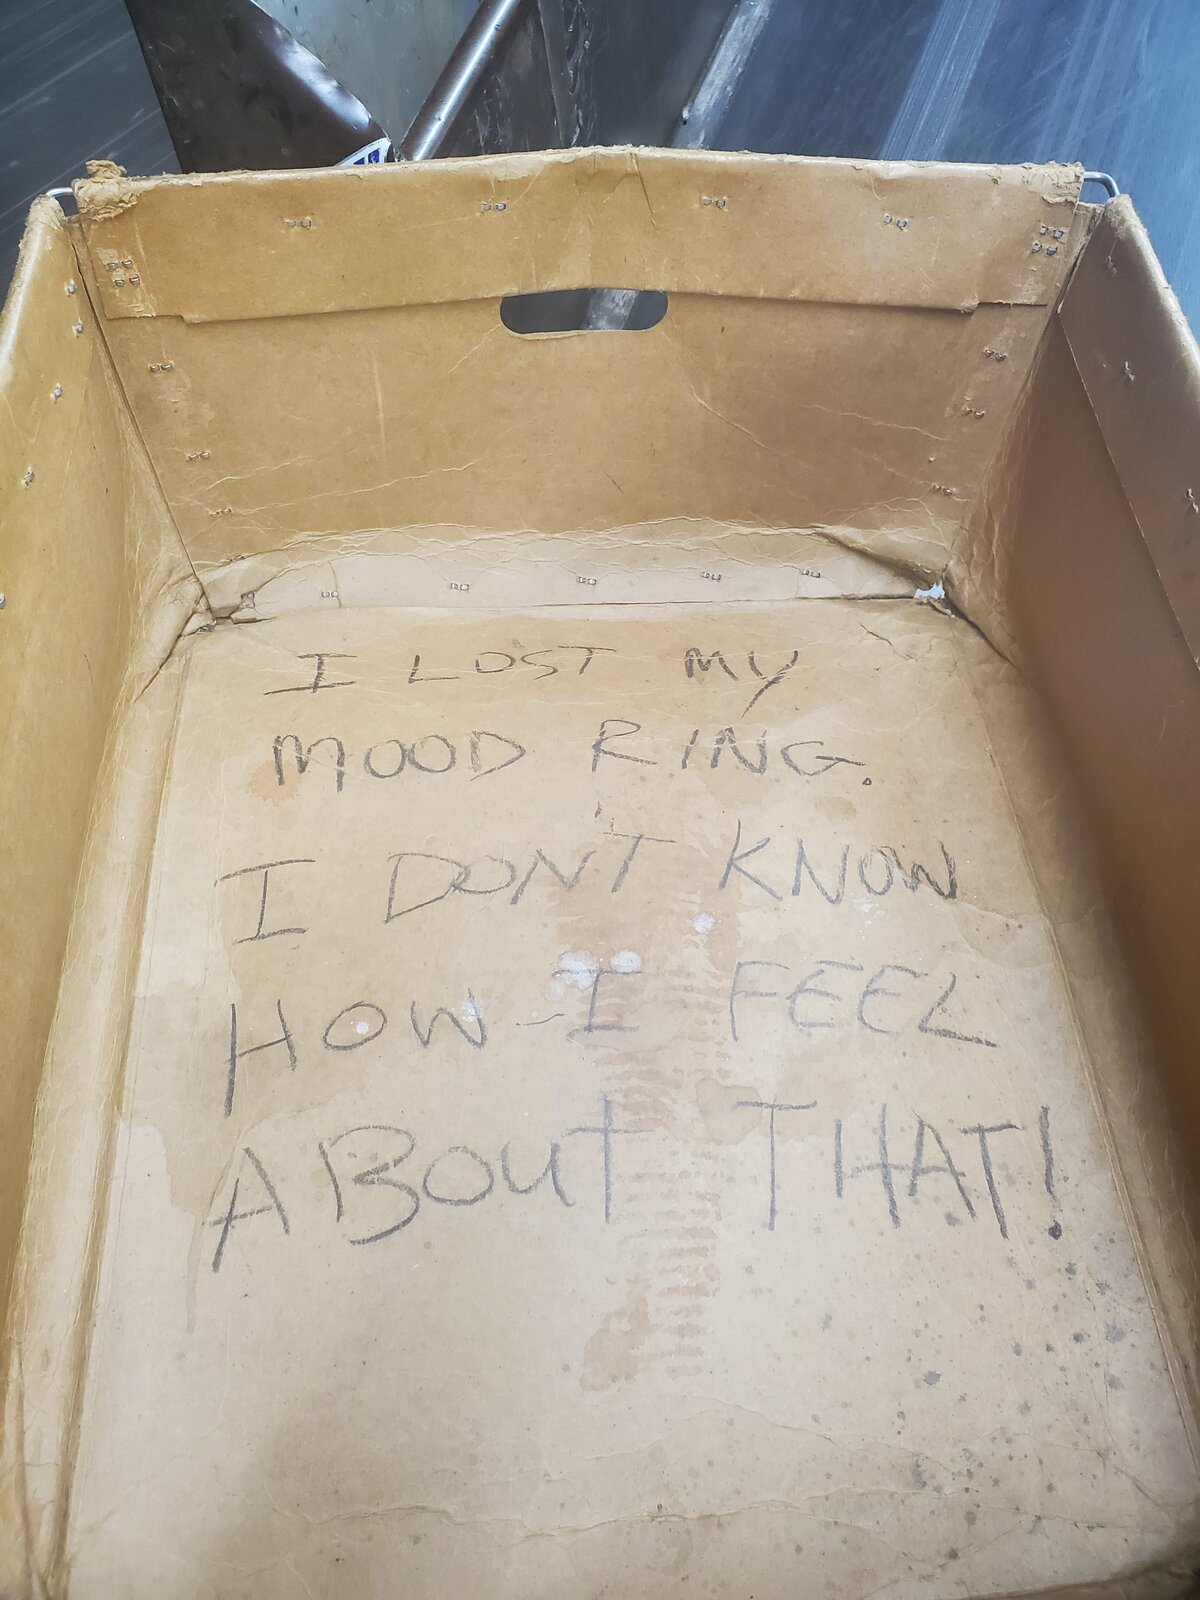 I LOST MY
MOOD RING.
I DON'T KNOW
HOW I FEEL
ABOUT THAT!